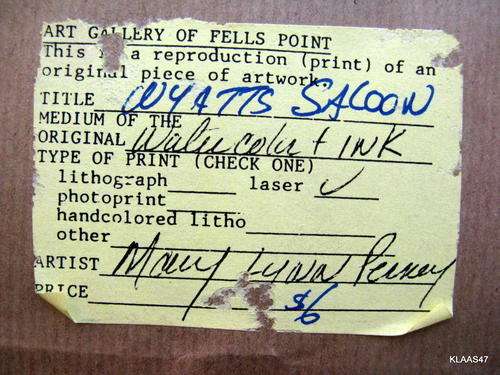 ART GALLERY OF FELLS POINT
This is a reproduction (print) of an
original piece of artwork
TITLE WYATTS SALOON
MEDIUM OF THE
ORIGINAL Watercolor + INK
TYPE OF PRINT (CHECK ONE)
lithograph laser ✓
photoprint
handcolored litho
other
ARTIST Mary Lynn
PRICE $6
KLAAS47